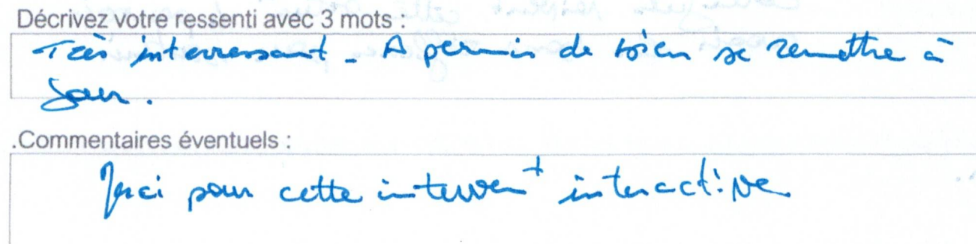 Décrivez votre ressenti avec 3 mots :
Très interressant - A permis de bien se remettre à
jour.
.Commentaires éventuels :
Merci pour cette intervent° interactive